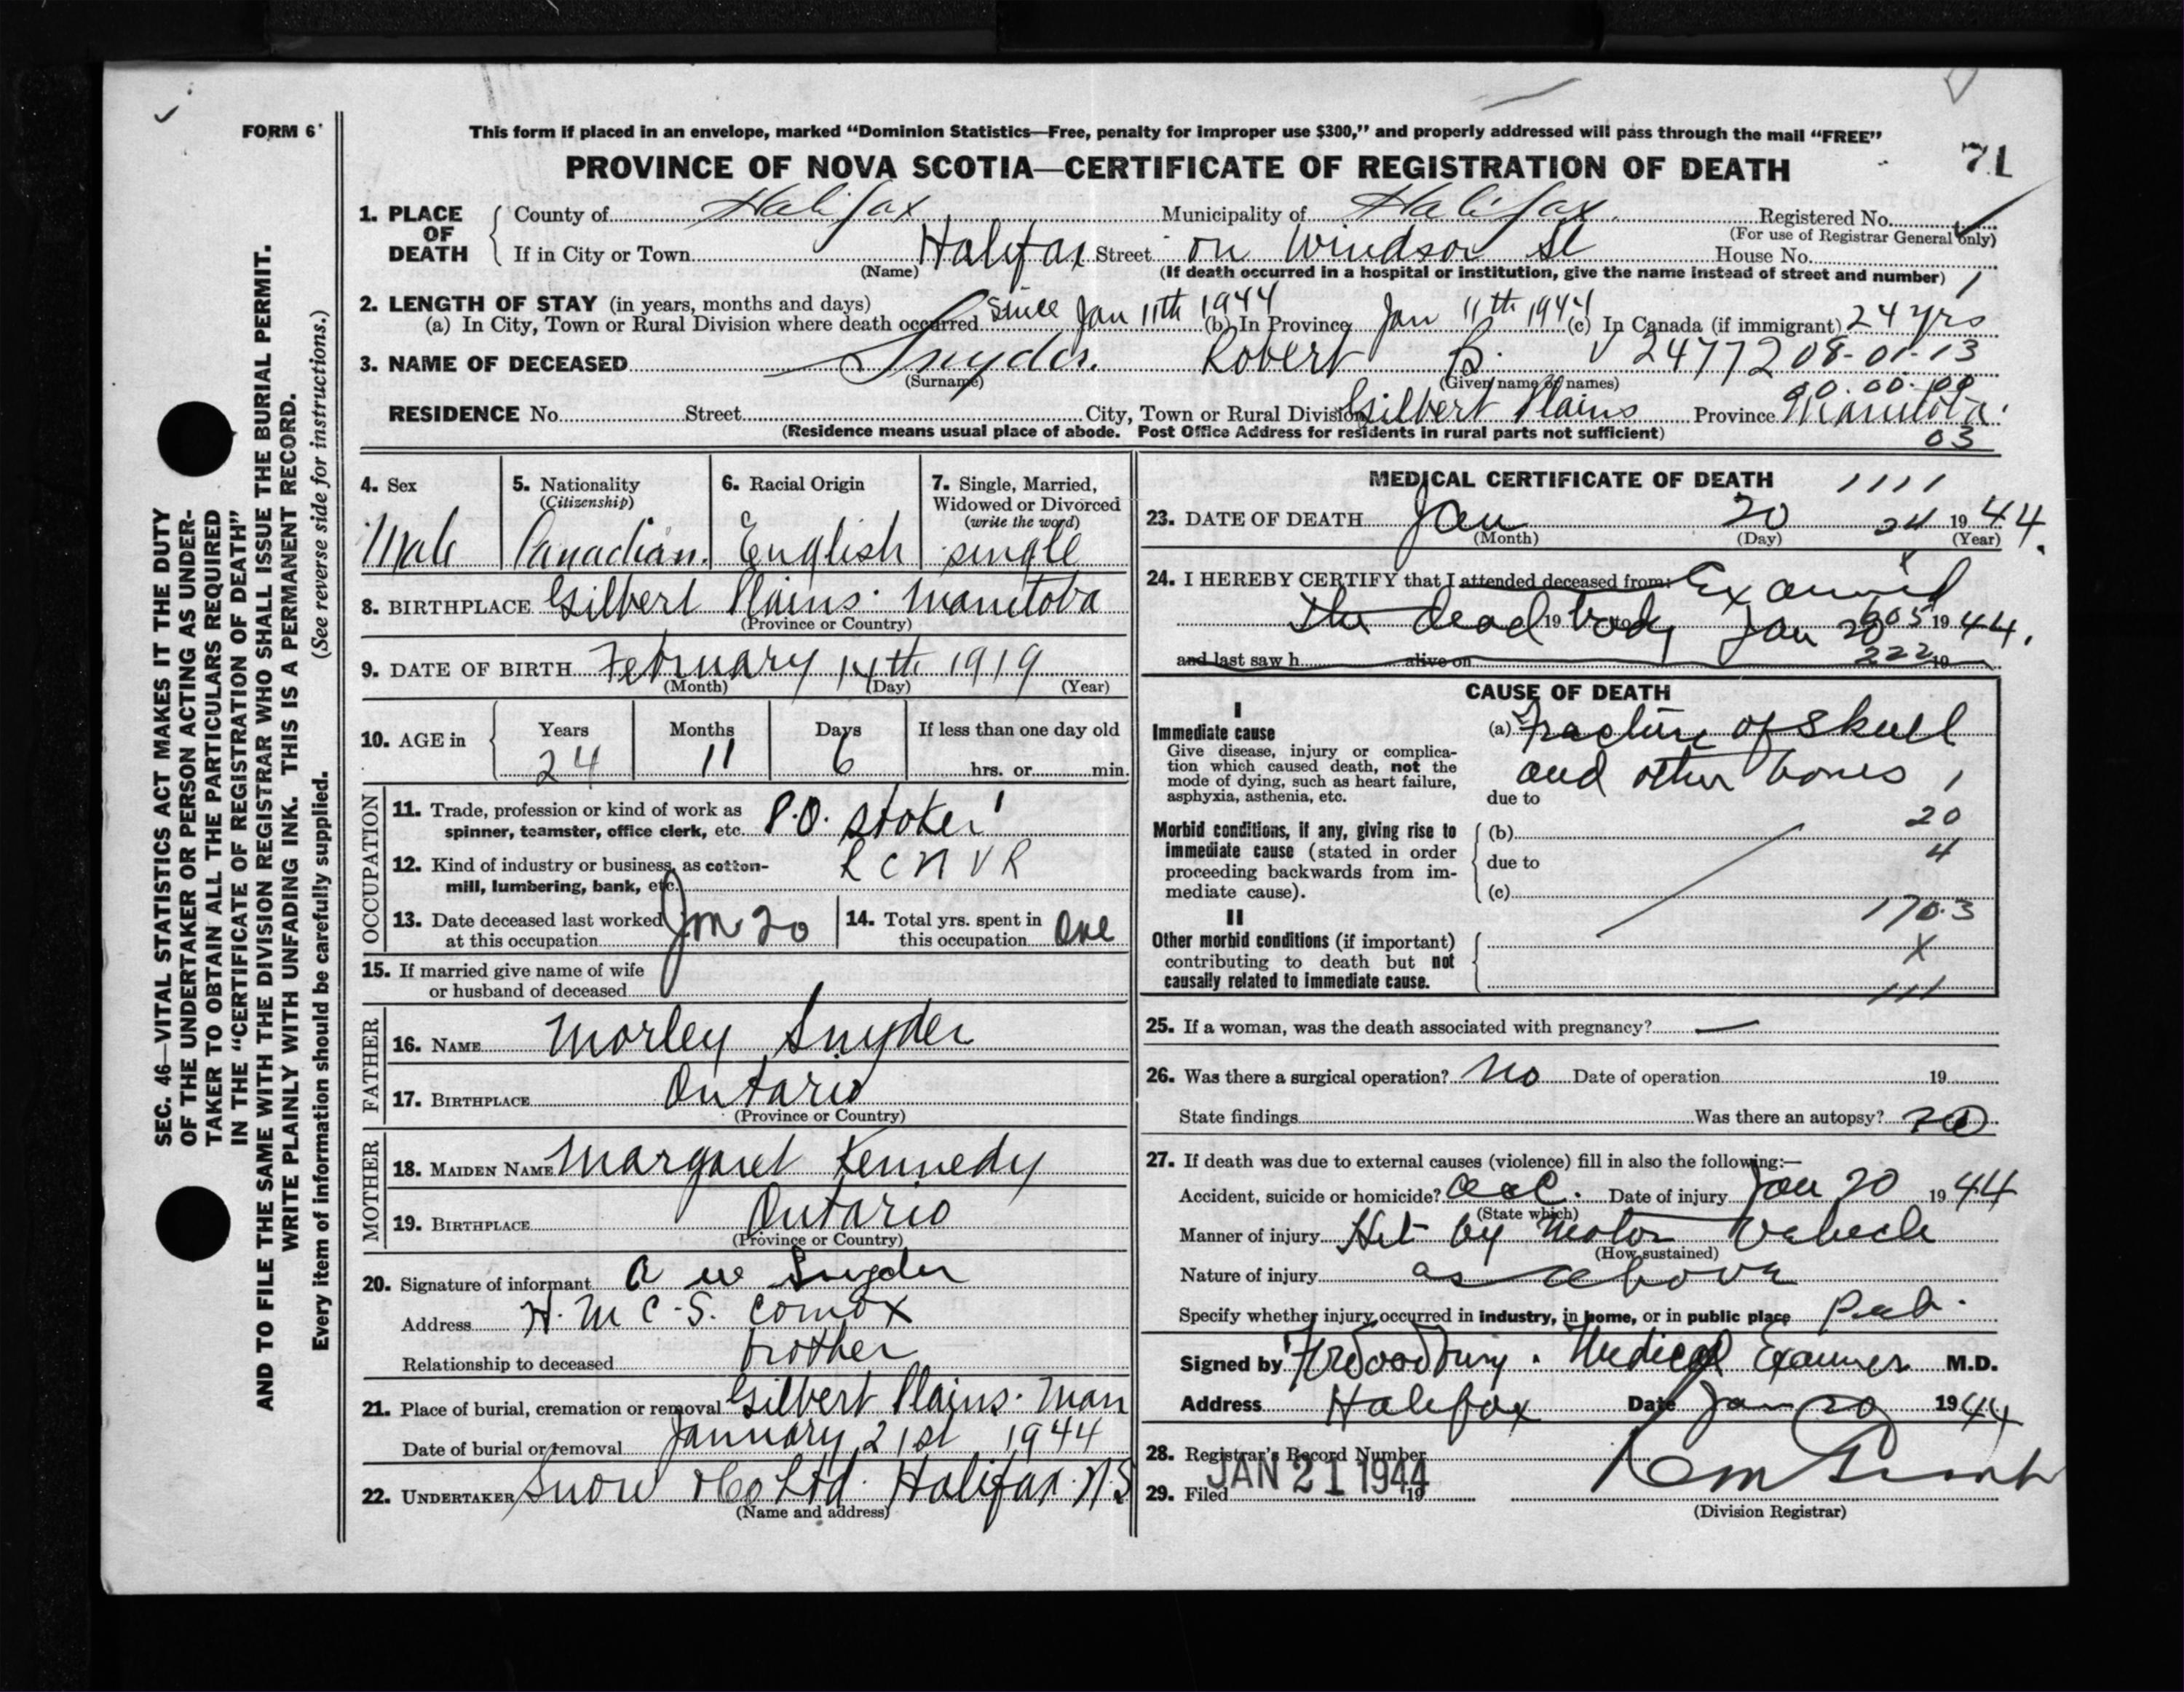 FORM 6
This form if placed in an envelope, marked “Dominion Statistics—Free, penalty for improper use $300,” and properly addressed will pass through the mail “FREE”
PROVINCE OF NOVA SCOTIA—CERTIFICATE OF REGISTRATION OF DEATH
71
1. PLACE OF DEATH
County of Halifax Municipality of Halifax Registered No.
(For use of Registrar General only)
If in City or Town Halifax Street on Windsor St House No.
(Name) (If death occurred in a hospital or institution, give the name instead of street and number)
1
2. LENGTH OF STAY (in years, months and days)
(a) In City, Town or Rural Division where death occurred since Jan 11th 1944 (b) In Province Jan 11th 1944 (c) In Canada (if immigrant) 24 yrs
3. NAME OF DECEASED Snyder. Robert B. V 24772 08-01-13
(Surname) (Given name or names)
00.00.00
RESIDENCE No. Street City, Town or Rural Division Gilbert Plains Province Manitoba.
(Residence means usual place of abode. Post Office Address for residents in rural parts not sufficient)
03
4. Sex
Male
5. Nationality
(Citizenship)
Canadian.
6. Racial Origin
English
7. Single, Married, Widowed or Divorced
(write the word)
single
8. BIRTHPLACE Gilbert Plains. Manitoba
(Province or Country)
9. DATE OF BIRTH February 14th 1919
(Month) (Day) (Year)
10. AGE in
Years Months Days If less than one day old
24 11 6 hrs. or min.
OCCUPATION
11. Trade, profession or kind of work as
spinner, teamster, office clerk, etc. P.O. Stoker
12. Kind of industry or business, as cotton-
mill, lumbering, bank, etc. R C N V R
13. Date deceased last worked
at this occupation Jan 20
14. Total yrs. spent in
this occupation One
15. If married give name of wife
or husband of deceased
FATHER
16. NAME Morley Snyder
17. BIRTHPLACE Ontario
(Province or Country)
MOTHER
18. MAIDEN NAME Margaret Kennedy
19. BIRTHPLACE Ontario
(Province or Country)
20. Signature of informant A W Snyder
Address H. M C. S. Comox
Relationship to deceased brother
21. Place of burial, cremation or removal Gilbert Plains. Man
Date of burial or removal January 21st 1944
22. UNDERTAKER Snow & Co Ltd. Halifax. N.S
(Name and address)
MEDICAL CERTIFICATE OF DEATH
1111
23. DATE OF DEATH Jan 20 24 1944.
(Month) (Day) (Year)
24. I HEREBY CERTIFY that I attended deceased from: Examined
the dead 19 body to Jan 20 605 1944.
and last saw h alive on 222 19
CAUSE OF DEATH
I
Immediate cause
Give disease, injury or complica-
tion which caused death, not the
mode of dying, such as heart failure,
asphyxia, asthenia, etc.
(a) Fracture of skull
and other bones 1
due to
20
Morbid conditions, if any, giving rise to
immediate cause (stated in order
proceeding backwards from im-
mediate cause).
(b)
due to 4
(c)
170.3
II
Other morbid conditions (if important)
contributing to death but not
causally related to immediate cause.
X
111
25. If a woman, was the death associated with pregnancy? —
26. Was there a surgical operation? No Date of operation 19
State findings Was there an autopsy? no
27. If death was due to external causes (violence) fill in also the following:—
Accident, suicide or homicide? acc. Date of injury Jan 20 1944
(State which)
Manner of injury Hit by Motor Vehicle
(How sustained)
Nature of injury as above
Specify whether injury occurred in industry, in home, or in public place Pub.
Signed by Woodbury. Medical Examiner M.D.
Address Halifax Date Jan 20 1944
28. Registrar's Record Number
29. Filed JAN 21 1944 19
(Division Registrar)
SEC. 46—VITAL STATISTICS ACT MAKES IT THE DUTY
OF THE UNDERTAKER OR PERSON ACTING AS UNDER-
TAKER TO OBTAIN ALL THE PARTICULARS REQUIRED
IN THE “CERTIFICATE OF REGISTRATION OF DEATH”
AND TO FILE THE SAME WITH THE DIVISION REGISTRAR WHO SHALL ISSUE THE BURIAL PERMIT.
WRITE PLAINLY WITH UNFADING INK. THIS IS A PERMANENT RECORD.
Every item of information should be carefully supplied. (See reverse side for instructions.)